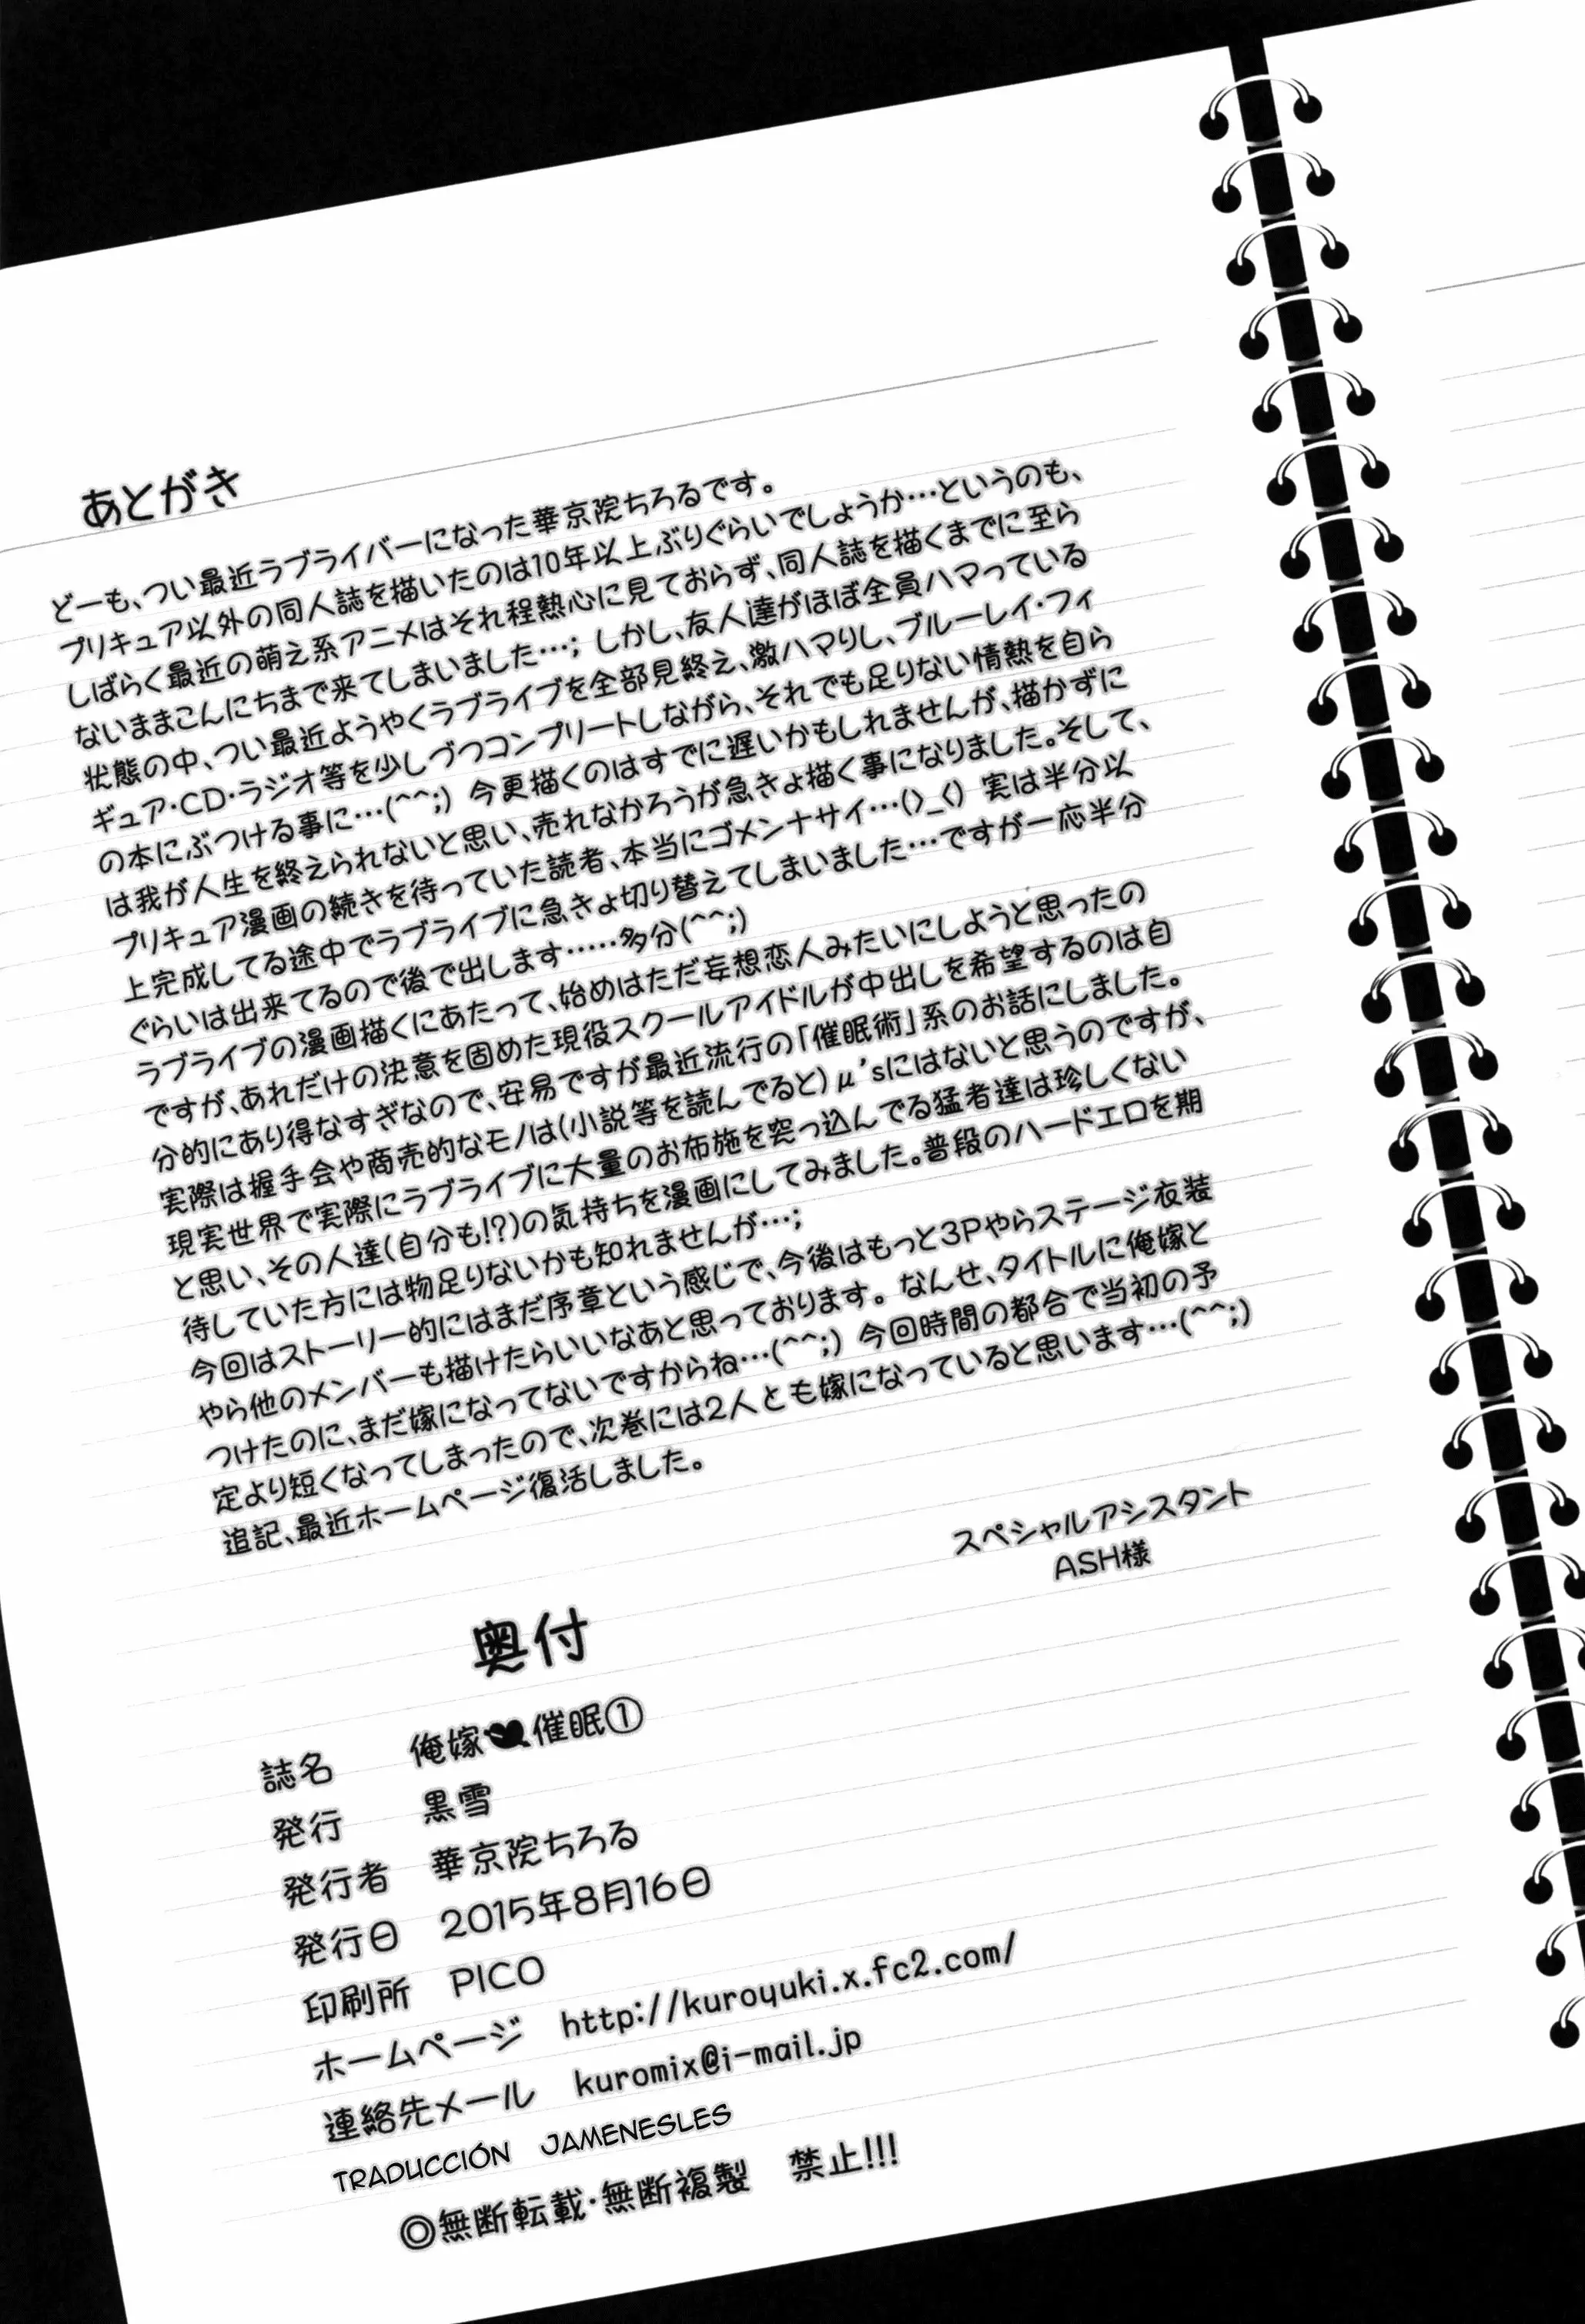 あとがき
どーも、つい最近ラブライバーになった華京院ちろるです。
プリキュア以外の同人誌を描いたのは10年以上ぶりぐらいでしょうか…というのも、
しばらく最近の萌え系アニメはそれ程熱心に見ておらず、同人誌を描くまでに至ら
ないままこんにちまで来てしまいました…; しかし、友人達がほぼ全員ハマっている
状態の中、つい最近ようやくラブライブを全部見終え、激ハマりし、ブルーレイ・フィ
ギュア・CD・ラジオ等を少しづつコンプリートしながら、それでも足りない情熱を自ら
の本にぶつける事に…(^^;) 今更描くのはすでに遅いかもしれませんが、描かずに
は我が人生を終えられないと思い、売れなかろうが急きょ描く事になりました。そして、
プリキュア漫画の続きを待っていた読者、本当にゴメンナサイ…(>_<) 実は半分以
上完成してる途中でラブライブに急きょ切り替えてしまいました…ですが一応半分
ぐらいは出来てるので後で出します……多分(^^;)
ラブライブの漫画描くにあたって、始めはただ妄想恋人みたいにしようと思ったの
ですが、あれだけの決意を固めた現役スクールアイドルが中出しを希望するのは自
分的にあり得なすぎなので、安易ですが最近流行の「催眠術」系のお話にしました。
実際は握手会や商売的なモノは(小説等を読んでると)μ'sにはないと思うのですが、
現実世界で実際にラブライブに大量のお布施を突っ込んでる猛者達は珍しくない
と思い、その人達(自分も!?)の気持ちを漫画にしてみました。普段のハードエロを期
待していた方には物足りないかも知れませんが…;
今回はストーリー的にはまだ序章という感じで、今後はもっと3Pやらステージ衣装
やら他のメンバーも描けたらいいなあと思っております。なんせ、タイトルに俺嫁と
つけたのに、まだ嫁になってないですからね…(^^;) 今回時間の都合で当初の予
定より短くなってしまったので、次巻には2人とも嫁になっていると思います…(^^;)
追記、最近ホームページ復活しました。
スペシャルアシスタント
ASH様
奥付
誌名 俺嫁催眠①
発行 黒雪
発行者 華京院ちろる
発行日 2015年8月16日
印刷所 PICO
ホームページ http://kuroyuki.x.fc2.com/
連絡先メール kuromix@i-mail.jp
TRADUCCIÓN JAMENESLES
◎無断転載・無断複製 禁止!!!